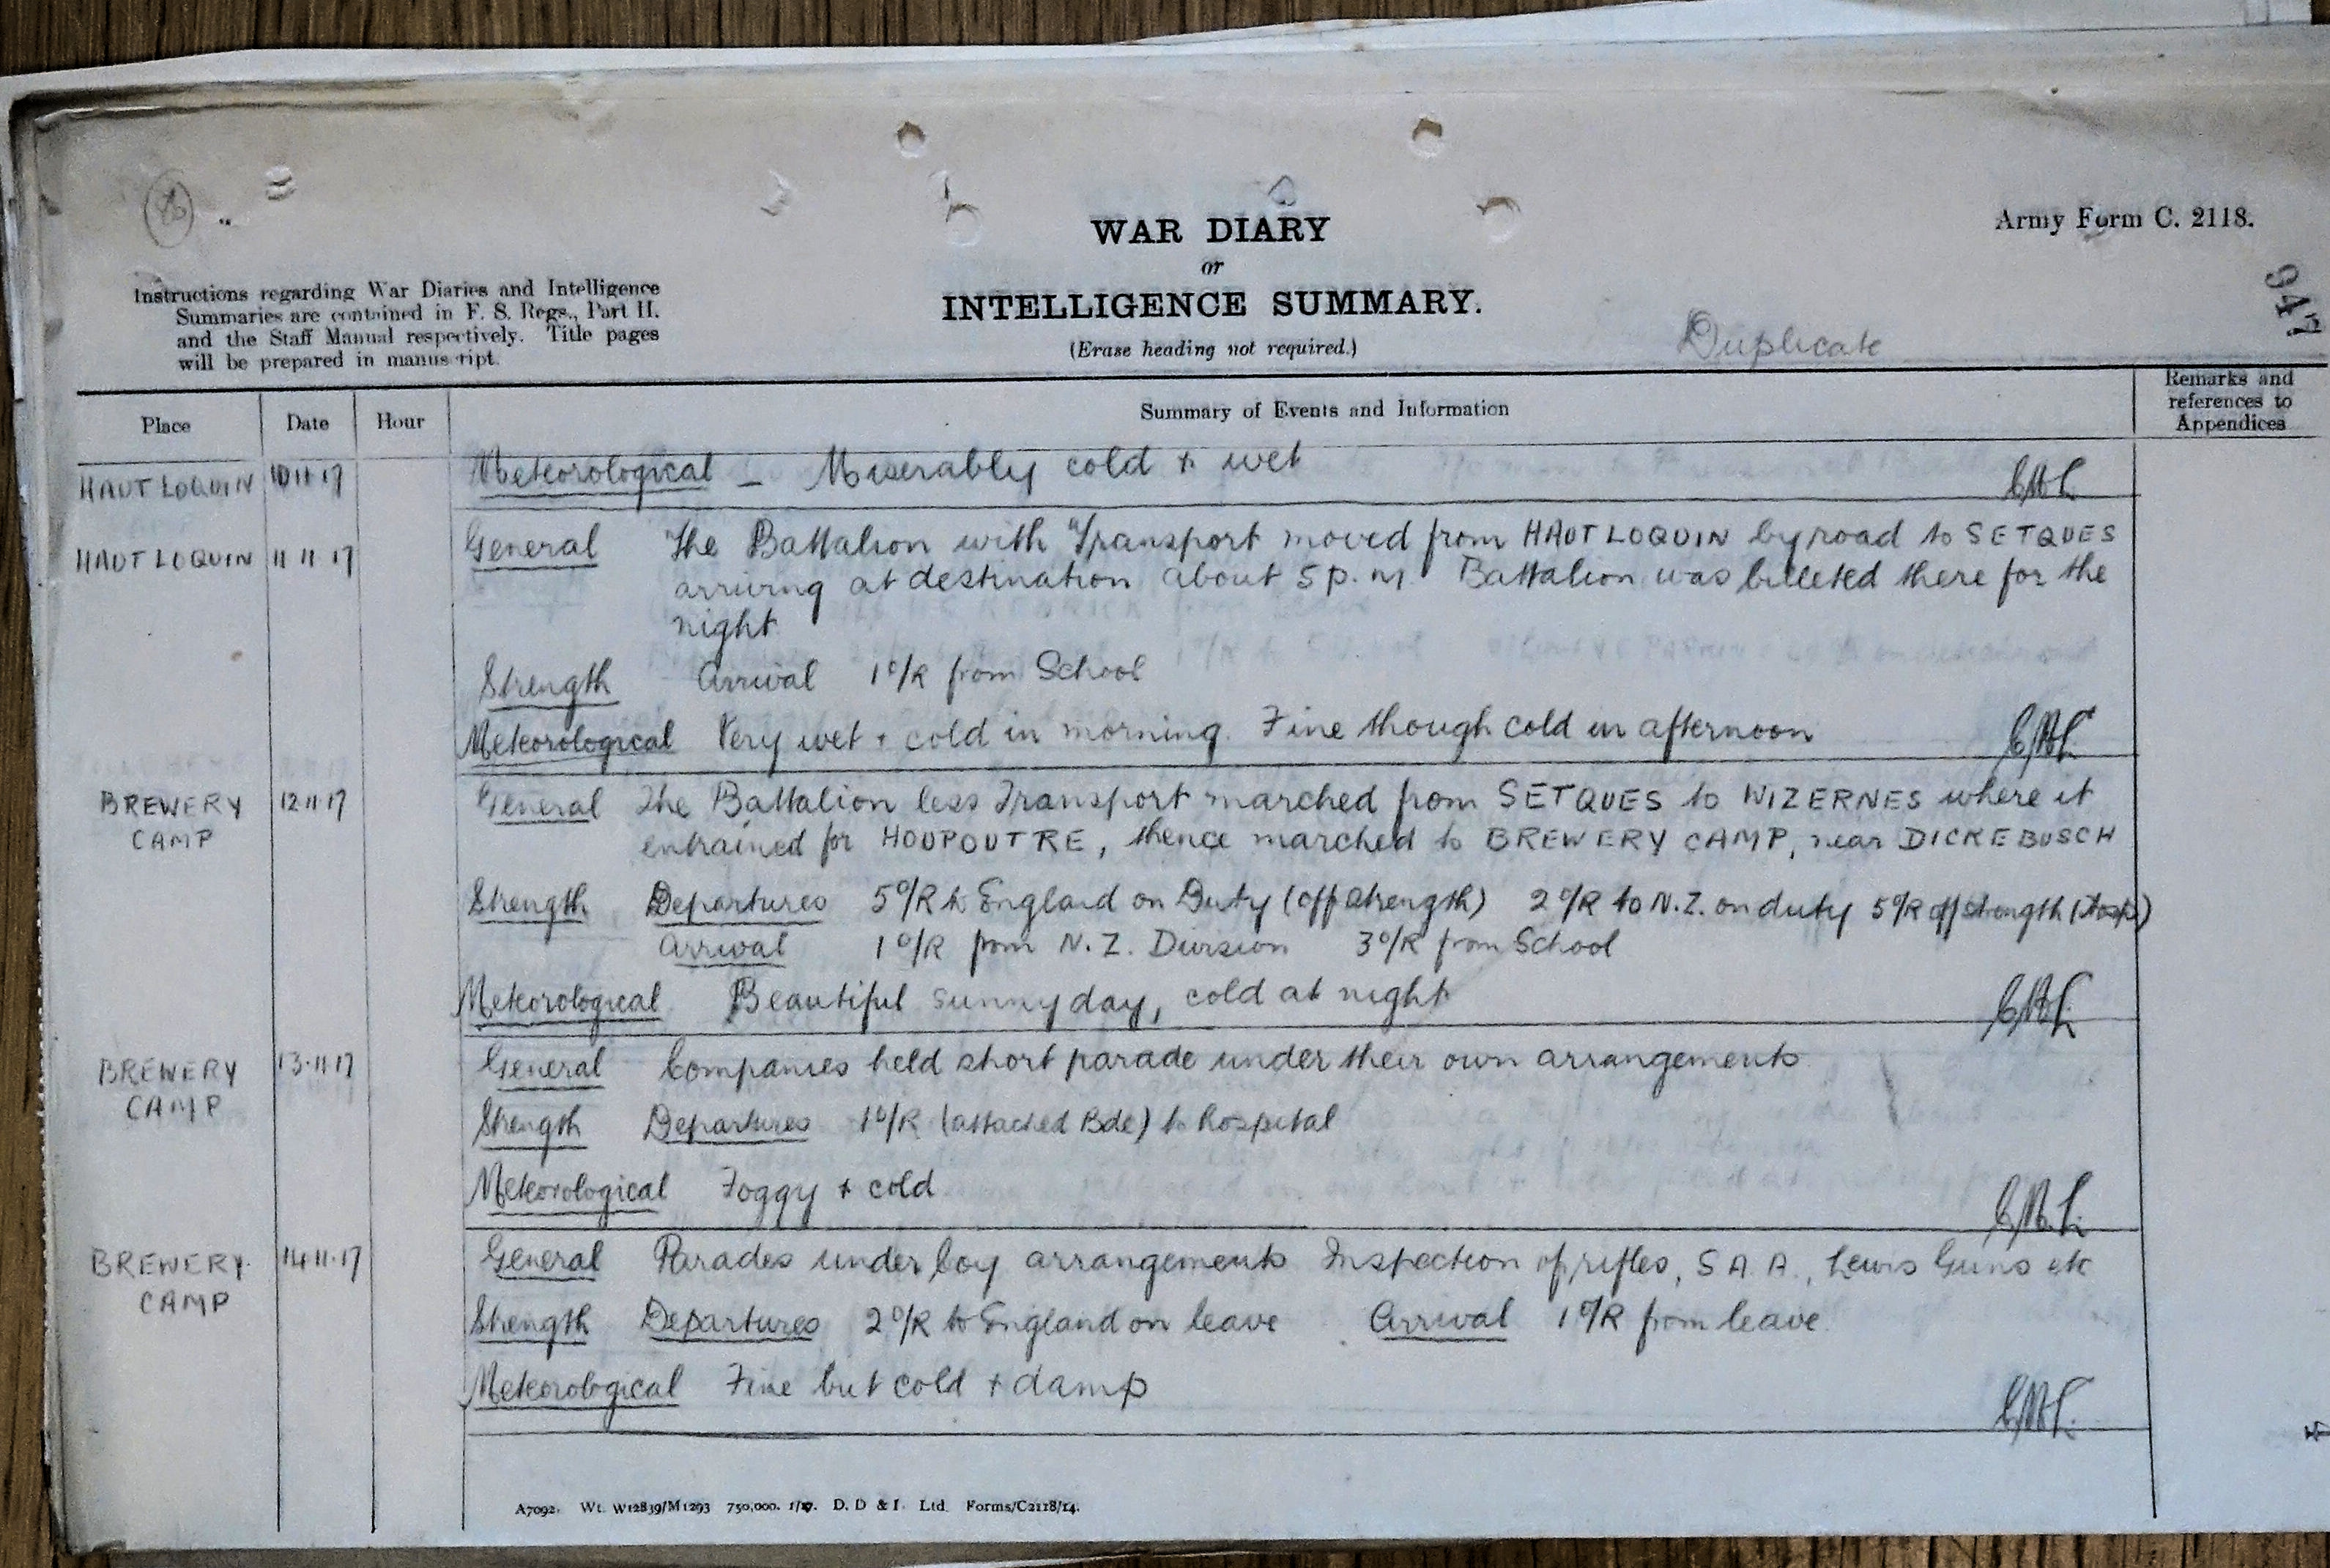 WAR DIARY
or
INTELLIGENCE SUMMARY.
(Erase heading not required.)
Army Form C. 2118.
947
Instructions regarding War Diaries and Intelligence
Summaries are contained in F. S. Regs., Part II.
and the Staff Manual respectively. Title pages
will be prepared in manuscript.
Duplicate
Place Date Hour Summary of Events and Information Remarks and references to Appendices
HAUT LOQUIN 10 11 17 Meteorological - Miserably cold + wet
HAUT LOQUIN 11 11 17 General The Battalion with Transport moved from HAUT LOQUIN by road to SETQUES
arriving at destination about 5 p.m. Battalion was billeted there for the
night
Strength Arrival 1 O/R from School
Meteorological Very wet + cold in morning. Fine though cold in afternoon
BREWERY CAMP 12 11 17 General The Battalion less Transport marched from SETQUES to WIZERNES where it
entrained for HOUPOUTRE, thence marched to BREWERY CAMP, near DICKEBUSCH
Strength Departures 5 O/R to England on Duty (off strength) 2 O/R to N.Z. on duty 5 O/R off strength (Hosp)
Arrival 1 O/R from N.Z. Division 3 O/R from School
Meteorological Beautiful sunny day, cold at night
BREWERY CAMP 13.11.17 General Companies held short parade under their own arrangements
Strength Departures 1 O/R (attached Bde) to hospital
Meteorological Foggy + cold
BREWERY CAMP 14.11.17 General Parades under Coy arrangements Inspection of rifles, S.A.A., Lewis Guns etc
Strength Departures 2 O/R to England on leave Arrival 1 O/R from leave.
Meteorological Fine but cold + damp
A7092. Wt. W12839/M1293 750,000. 1/17. D. D & L. Ltd. Forms/C2118/14.